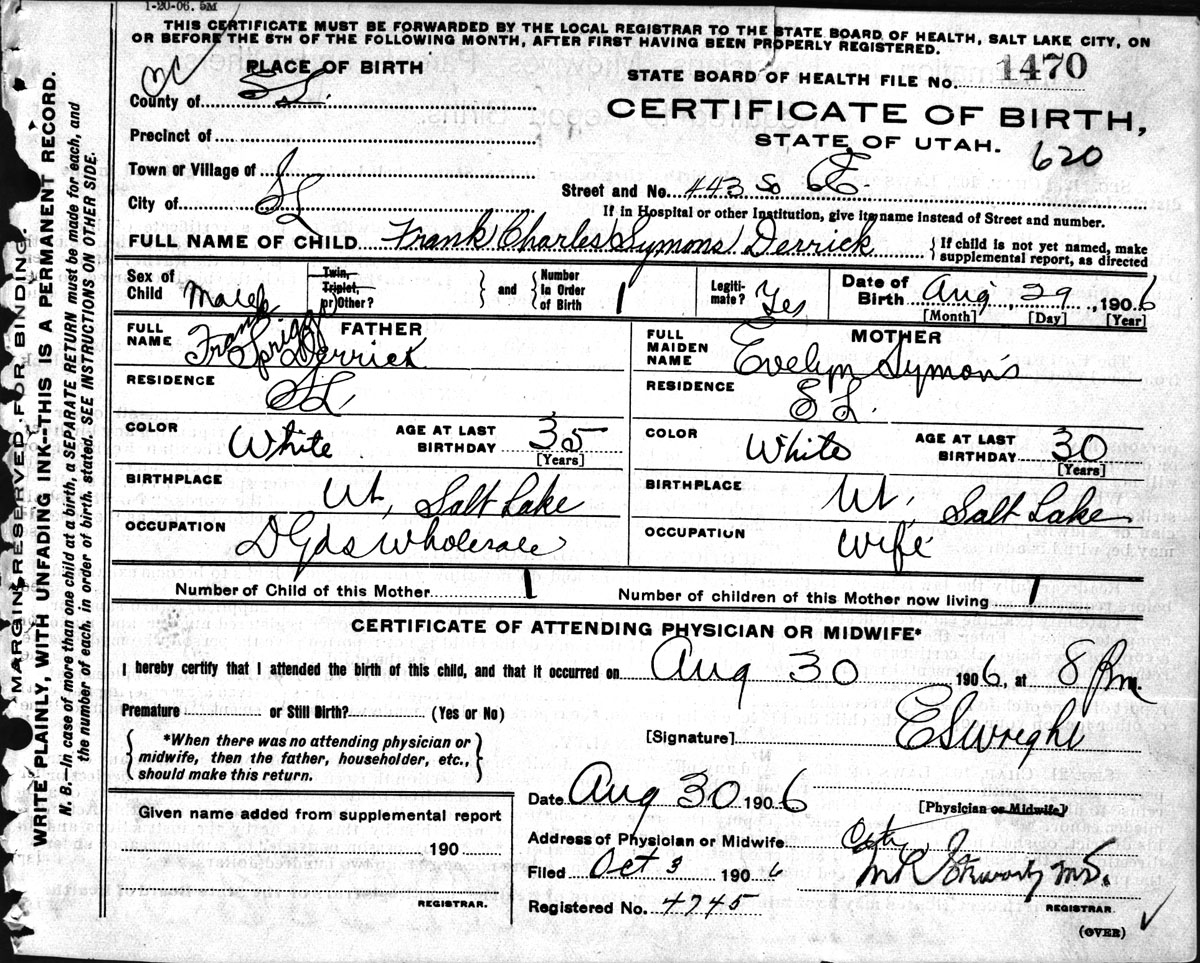 1-20-06. 5M
THIS CERTIFICATE MUST BE FORWARDED BY THE LOCAL REGISTRAR TO THE STATE BOARD OF HEALTH, SALT LAKE CITY, ON
OR BEFORE THE 5TH OF THE FOLLOWING MONTH, AFTER FIRST HAVING BEEN PROPERLY REGISTERED.
PLACE OF BIRTH
STATE BOARD OF HEALTH FILE No. 1470
County of SL.
CERTIFICATE OF BIRTH,
Precinct of
STATE OF UTAH.
620
Town or Village of
Street and No. 443 So 6E.
City of SL
If in Hospital or other Institution, give its name instead of Street and number.
FULL NAME OF CHILD Frank Charles Symons Derrick
If child is not yet named, make
supplemental report, as directed
Sex of Child Male
Twin, Triplet, or Other?
and
Number In Order of Birth 1
Legiti-mate? Yes
Date of Birth Aug 29, 1906
[Month] [Day] [Year]
FATHER
FULL NAME Frank Spriggs Derrick
MOTHER
FULL MAIDEN NAME Evelyn Symons
RESIDENCE SL.
RESIDENCE SL.
COLOR White AGE AT LAST BIRTHDAY 35 [Years]
COLOR White AGE AT LAST BIRTHDAY 30 [Years]
BIRTHPLACE Ut, Salt Lake
BIRTHPLACE Ut, Salt Lake
OCCUPATION D Gds Wholesale
OCCUPATION Wife
Number of Child of this Mother 1
Number of children of this Mother now living 1
CERTIFICATE OF ATTENDING PHYSICIAN OR MIDWIFE*
I hereby certify that I attended the birth of this child, and that it occurred on Aug 30 1906, at 8 Pm.
Premature or Still Birth? (Yes or No)
[Signature] E S Wright
*When there was no attending physician or
midwife, then the father, householder, etc.,
should make this return.
Date Aug 30 1906
[Physician or Midwife]
Given name added from supplemental report
190
REGISTRAR.
Address of Physician or Midwife City
Filed Oct 3 1906
M.D.
Registered No. 4745
REGISTRAR.
(OVER)
MARGIN RESERVED FOR BINDING.
WRITE PLAINLY, WITH UNFADING INK--THIS IS A PERMANENT RECORD.
N. B.—In case of more than one child at a birth, a SEPARATE RETURN must be made for each, and
the number of each, in order of birth, stated. SEE INSTRUCTIONS ON OTHER SIDE.